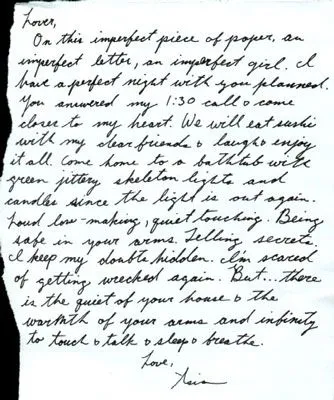 Lover,
On this imperfect piece of paper, an
imperfect letter, an imperfect girl. I
have a perfect night with you planned.
You answered my 1:30 call & come
closer to my heart. We will eat sushi
with my dear friends & laugh & enjoy
it all. Come home to a bathtub with
green jittery skeleton lights and
candles since the light is out again.
Loud love-making, quiet touching. Being
safe in your arms. Telling secrets.
I keep my doubts hidden. I'm scared
of getting wrecked again. But... there
is the quiet of your house & the
warmth of your arms and infinity
to touch & talk & sleep & breathe.
Love,
Asia